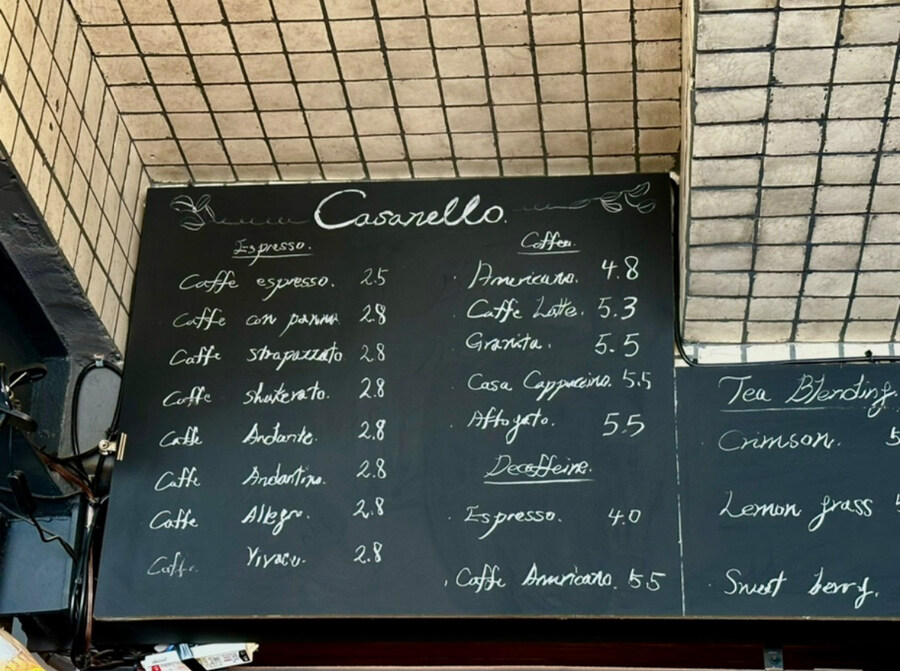 Casanello.
Espresso.
Caffe espresso. 2.5
Caffe con panna 2.8
Caffe strapazzato 2.8
Caffe shakerato. 2.8
Caffe Andante. 2.8
Caffe Andantino. 2.8
Caffe Allegro. 2.8
Caffe Vivace. 2.8
Coffee.
· Americano. 4.8
· Caffe Latte. 5.3
Granita. 5.5
· Casa Cappuccino. 5.5
· Affogato. 5.5
Decaffeine.
· Espresso. 4.0
· Caffe Americano. 5.5
Tea Blending.
Crimson. 5
Lemon grass
· Sweet berry.